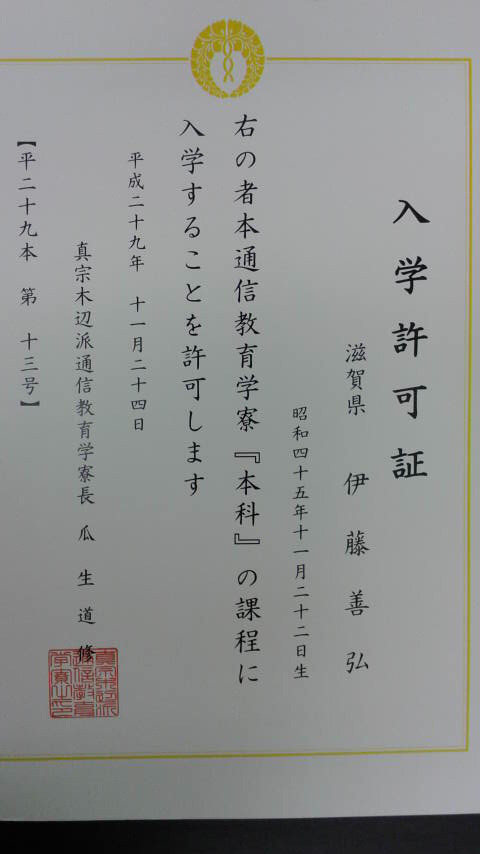 入学許可証
滋賀県 伊藤善弘
昭和四十五年十一月二十二日生
右の者本通信教育学寮『本科』の課程に
入学することを許可します
平成二十九年 十一月二十四日
真宗木辺派通信教育学寮長 瓜生道修
【平二十九本 第 十三号】